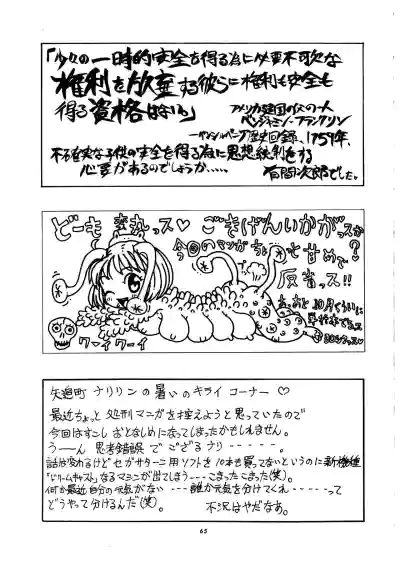 「少々の一時的安全を得る為に必要不可欠な
権利を放棄する彼らに権利も安全も
得る資格はない。」
アメリカ建国の父の一人
ベンジャミン・フランクリン
歴史回録、1759年、
不確実な子供の安全を得る為に思想統制をする
必要があるのでしょうか.....
有間次郎でした。
どーも 変丸っス♡ ごきげんいかがっスか?
今回のマンガちょっと甘めで
反省っス!!
10月ぐらいに
ワーイワーイ
矢追町 ナリリンの暑いのキライ コーナー ♡
最近ちょっと 処刑マンガを控えようと思っていたので
今回はすこし おとなしめになってしまったかもしれません。
うーーん 思考錯誤 でござるナリ ------。
話は変わるけど セガサターン用ソフトを10本も買ってないというのに新機種
「ドリームキャスト」なるマシンが出てしまう---こまったこまった(笑)。
何か最近自分の元気がない ---誰か元気を分けてくれ-----って
どうやって分けるんだ(笑)。 不況はやだなあ。
65